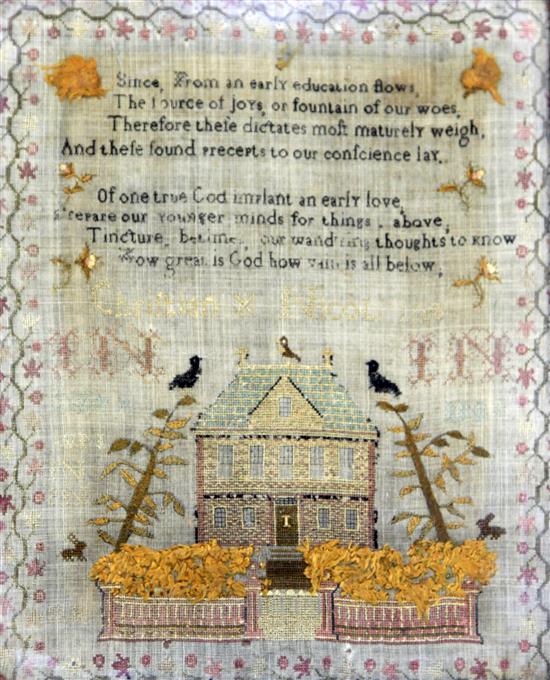 Since, From an early education flows,
The source of joys, or fountain of our woes,
Therefore theſe dictates moſt maturely weigh,
And theſe ſound precepts to our conſcience lay.
Of one true God implant an early love,
Prepare our younger minds for things, above,
Tincture, betimes, our wand'ring thoughts to know
How great is God how vain is all below,
Christian
IN IN